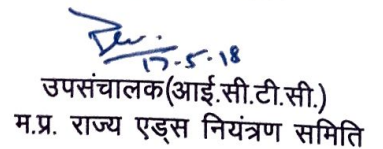 17-5-18
उपसंचालक(आई.सी.टी.सी.)
म.प्र. राज्य एड्स नियंत्रण समिति